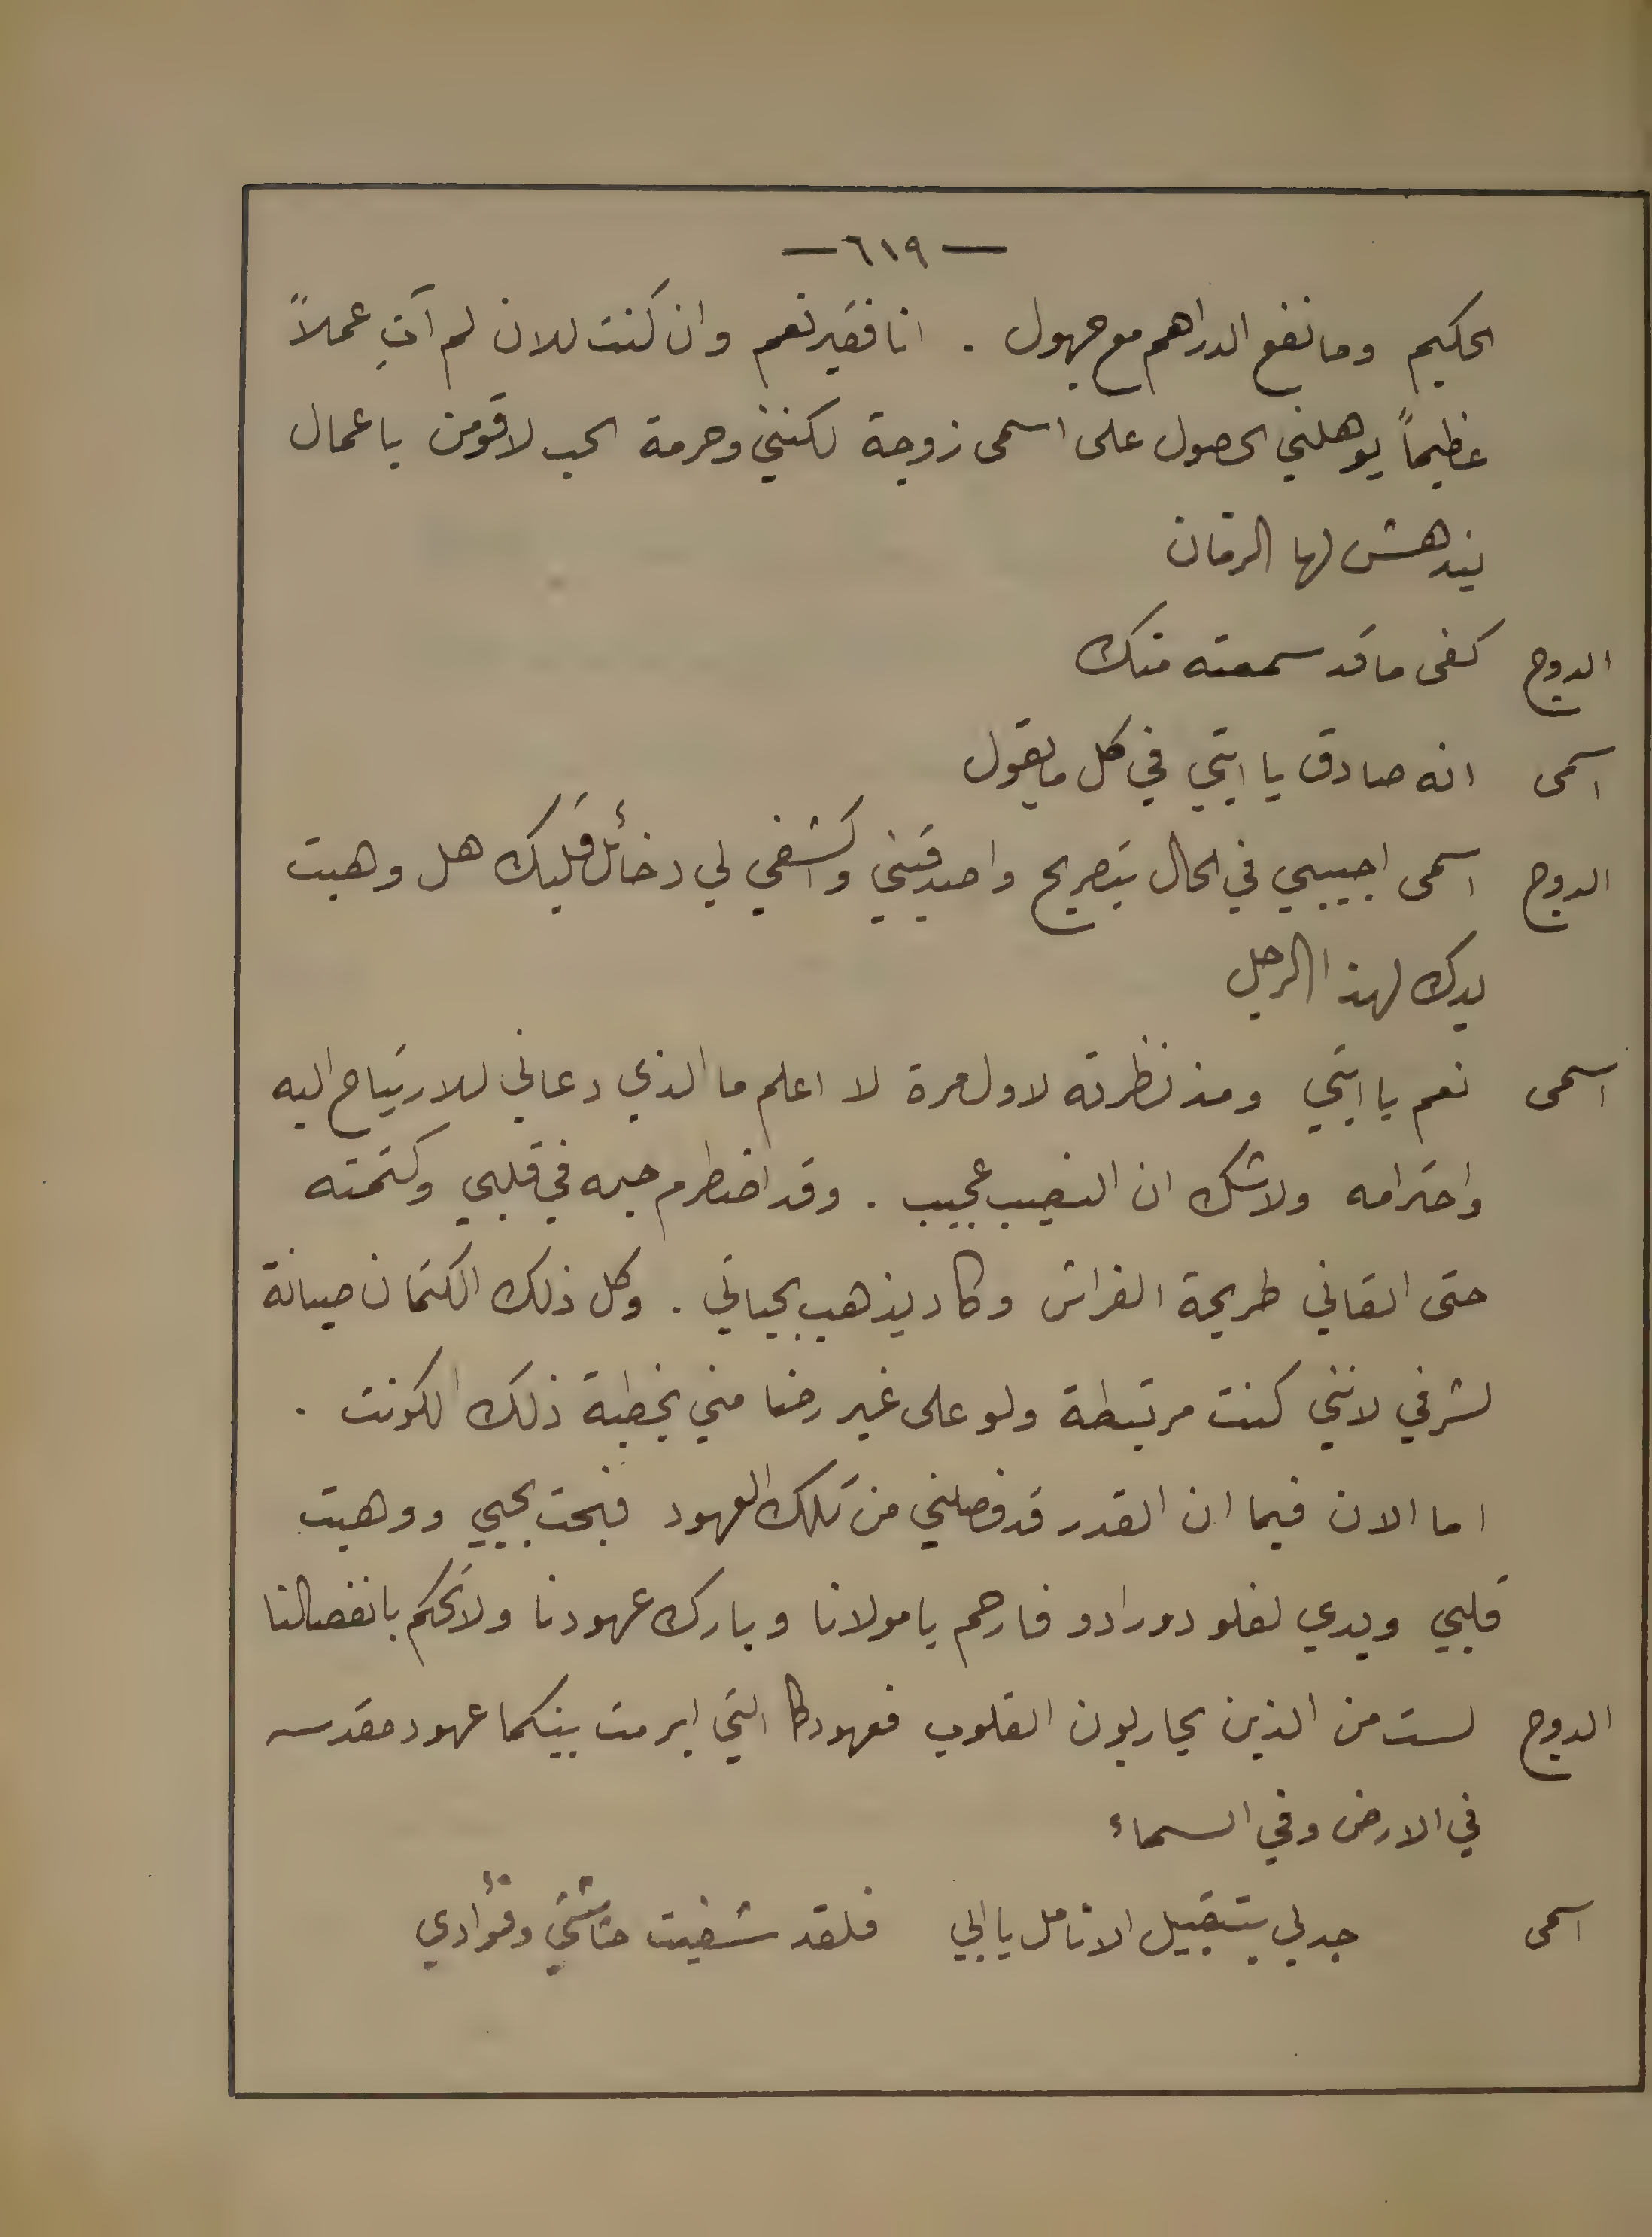 — ٦١٩ —
الحكيم وما نفع الدراهم مع جهول . انا فقير نعم وان كنت للان لم آتِ عملاً
عظيماً يوهلني الحصول على اسمى زوجة لكنني وحرمة الحب لاقومن باعمال
يندهش لها الزمان
الدوج كفى ما قد سمعته منك
اسمى انه صادق يا ابتي في كل ما يقول
الدوج اسمى اجيبيي في الحال بتصريح واصدقيني واكشفي لي دخائل قلبك هل وهبت
يدك لهذا الرجل
اسمى نعم يا ابتي ومنذ نظرته لاول مرة لا اعلم ما الذي دعاني للارتياح اليه
واحترامه ولاشك ان النصيب عجيب . وقد اضطرم حبه في قلبي وكتمته
حتى القاني طريحة الفراش وكاد يذهب بحياتي . وكل ذلك الكتمان صيانة
لشرفي لانني كنت مرتبطة ولو على غير رضا مني بخطبة ذلك الكونت .
اما الان فيما ان القدر قد فصلني من تلك العهود فبحت بحبي ووهبت
قلبي ويدي لفلو دورادو فارحم يا مولانا وبارك عهودنا ولا تحكم بانفصالنا
الدوج لست من الذين يحاربون القلوب فعهودكما التي ابرمت بينكما عهود مقدسه
في الارض وفي السماء
اسمى جد لي بتقبيل الانامل يا ابي فلقد شفيت حشاشتي وفؤادي